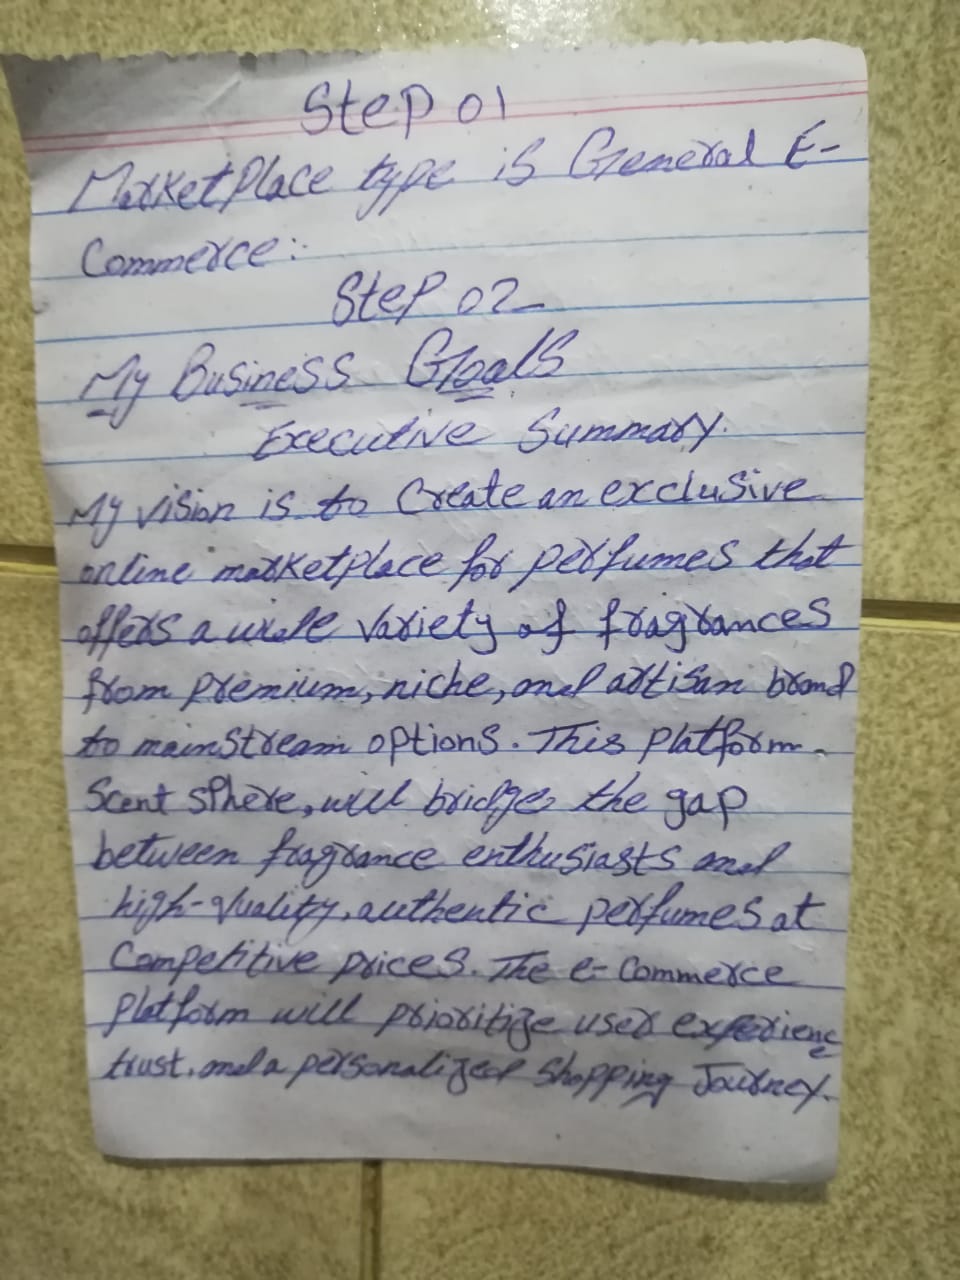 Step 01
Marketplace type is General E-
Commerce:
Step 02
My Business Goals
Executive Summary.
My vision is to Create an exclusive
online marketplace for perfumes that
offers a wide variety of fragrances
from premium, niche, and artisan brand
to mainstream options. This platform.
Scent sphere, will bridge the gap
between fragrance enthusiasts and
high-quality, authentic perfumes at
Competitive prices. The e-Commerce
platform will prioritize user experience
trust, and a personalized Shopping Journey.